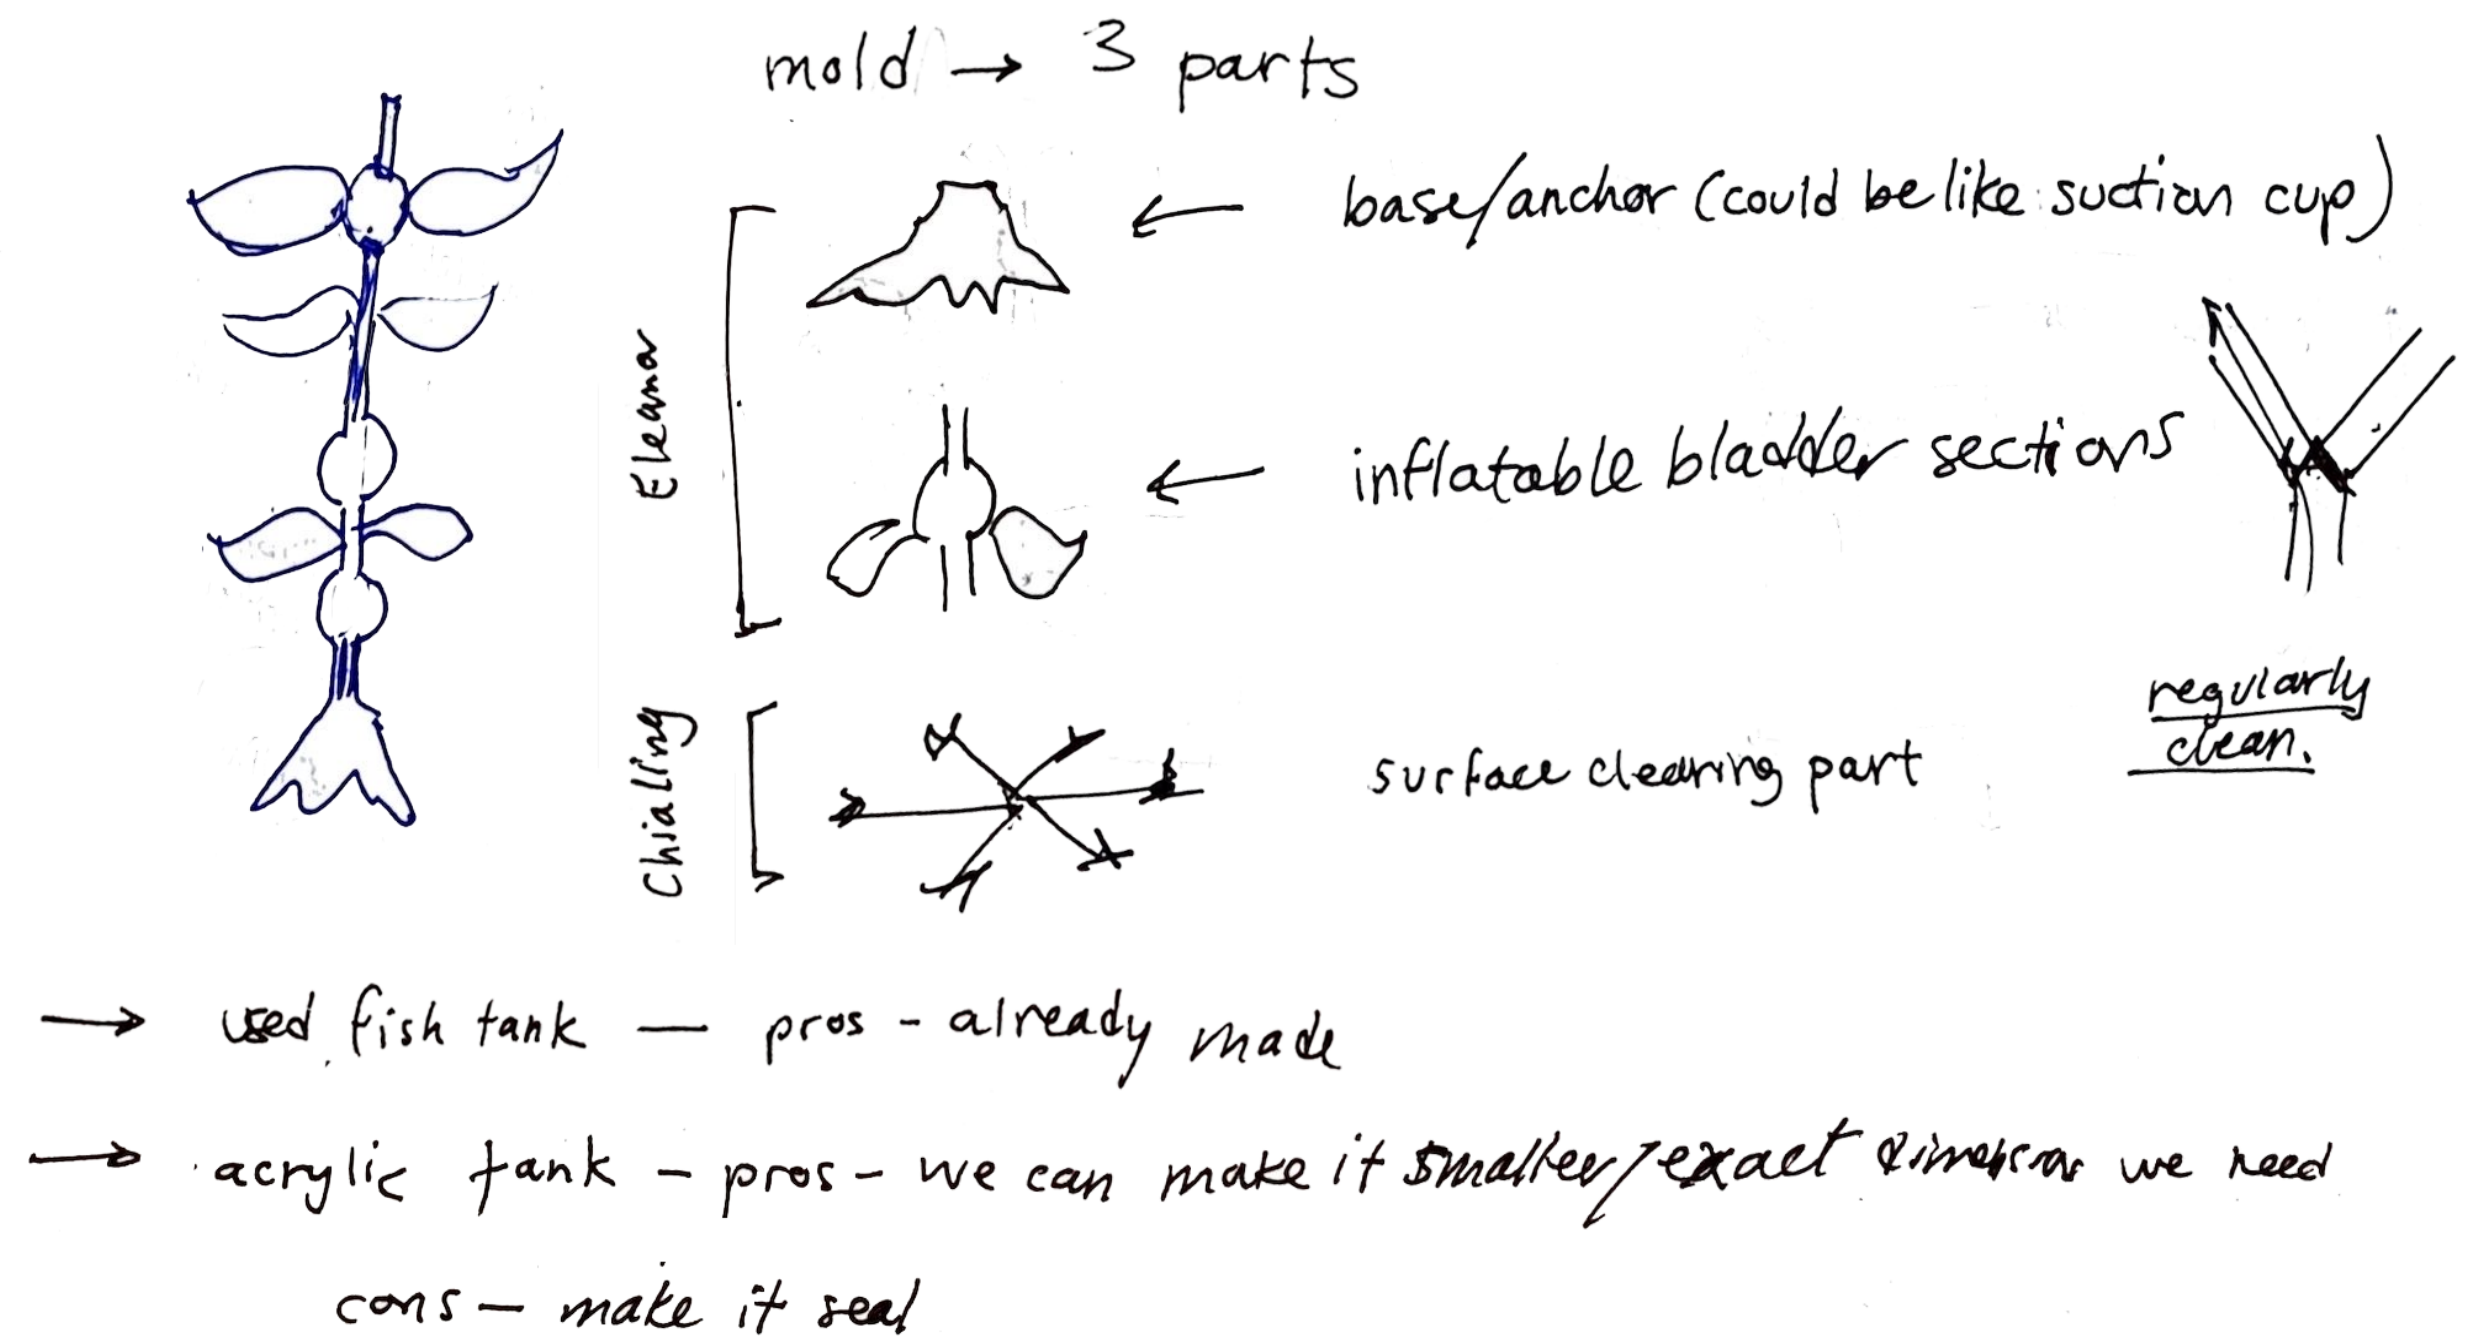 mold → 3 parts
Eleanor
base/anchor (could be like suction cup)
inflatable bladder sections
Chialing
surface cleaning part
regularly
clean.
→ used fish tank — pros - already made
→ acrylic tank - pros - we can make it smaller/exact dimensions we need
cons - make it seal